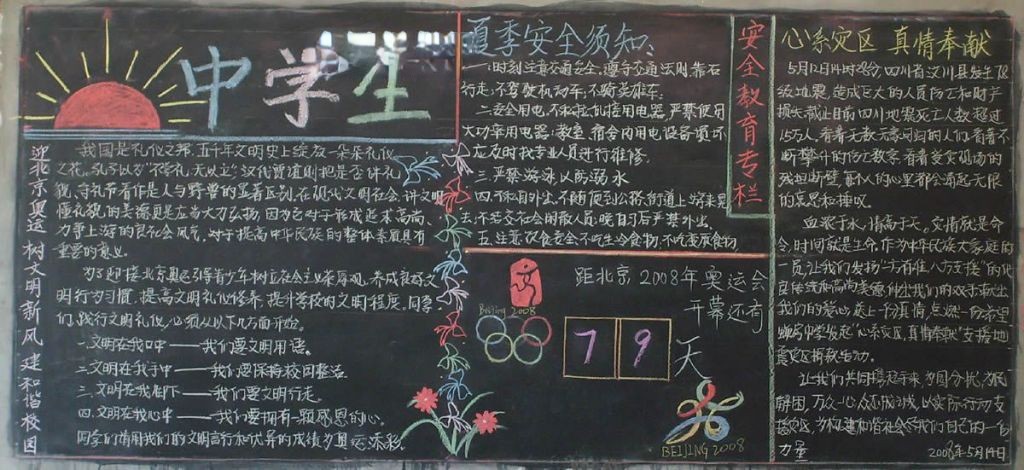 中学生
迎北京奥运 树文明新风 建和谐校园
我国是礼仪之邦,五千年文明史上绽放一朵朵礼仪
之花。孔子以为"不学礼,无以立"汉代贾谊则把是否讲礼
貌、守礼节看作是人与野兽的显著区别。在现代文明社会,讲文明
懂礼貌的美德更是应当大力弘扬,因为它对于形成追求高尚、
力攀上游的良社会风气,对于提高中华民族的整体素质具有
重要的意义。
为了迎接北京奥运引导青少年树立社会主义荣辱观,养成良好文
明行为习惯,提高文明礼仪修养,提升学校的文明程度。同学
们,践行文明礼仪,必须从以下几方面开始。
一.文明在我口中——我们要文明用语。
二.文明在我手中——我们要保持校园整洁。
三.文明在我脚下——我们要文明行走。
四.文明在我心中——我们要拥有一颗感恩的心。
同学们请用我们的文明言行和优异的成绩为奥运添彩
夏季安全须知:
一.时刻注意交通安全,遵守交通法则靠右
行走,不驾驶机动车,不骑英雄车。
二.安全用电,不私拉乱接用电器,严禁使用
大功率用电器;教室、宿舍内用电设备损坏
应及时找专业人员进行维修。
三.严禁游泳,以防溺水
五.注意饮食安全不吃生冷食物,不吃变质食物
安全教育专栏
Beijing 2008
距北京2008年奥运会
开幕还有
79天
BEIJING 2008
心系灾区 真情奉献
5月12日14时28分,四川省汶川县发生7.8
级地震,造成巨大的人员伤亡和财产
损失,截止目前四川地震死亡人数超过
1.5万人,看着无数无家可归的人们,看着不
断攀升的伤亡数字,看着受灾现场的
残垣断壁,每个人的心里都会涌起无限
的哀思和悲叹。
血浓于水,情高于天,灾情就是命
令,时间就是生命,作为中华民族大家庭的
一员,让我们发扬"一方有难,八方支援"的优
良传统和高尚美德,伸出我们的双手献出
我们的爱心,献上一份真情,点燃一份希望
"心系灾区,真情奉献"支援地
震灾区捐款活动。
让我们共同携起手来,为国分忧,为民
解困,万众一心众志成城,以实际行动支
援灾区,为构建和谐社会尽我们自己的一份
力量
2008年5月19日